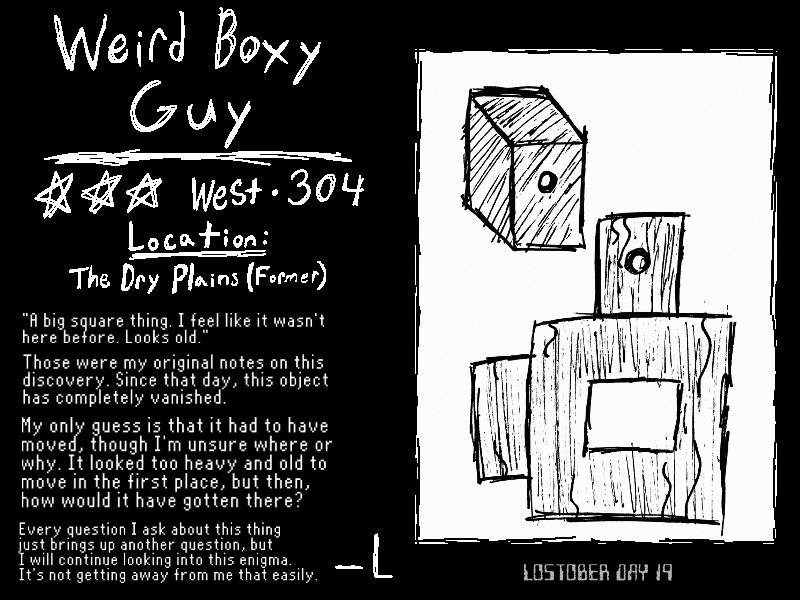 Weird Boxy
Guy
West · 304
Location:
The Dry Plains (Former)
"A big square thing. I feel like it wasn't
here before. Looks old."
Those were my original notes on this
discovery. Since that day, this object
has completely vanished.
My only guess is that it had to have
moved, though I'm unsure where or
why. It looked too heavy and old to
move in the first place, but then,
how would it have gotten there?
Every question I ask about this thing
just brings up another question, but
I will continue looking into this enigma.
It's not getting away from me that easily.
— L
LOSTOBER DAY 19